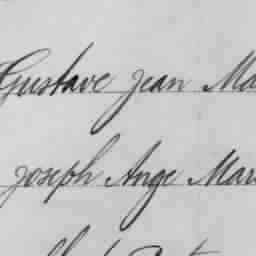 Gustave Jean Ma
Joseph Ange Mar